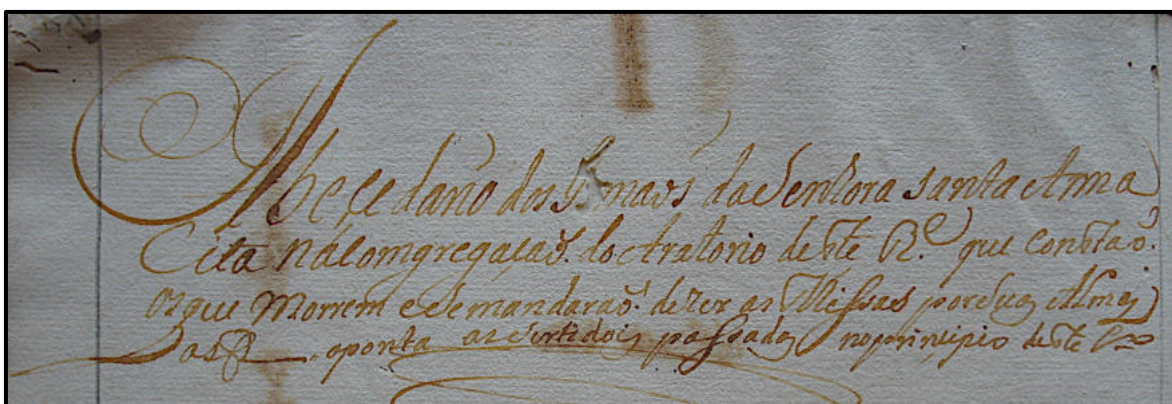 Abeçedario dos Irmaõs da Senhora Santa Anna
Cita na Comgregaçaõ. do Oratorio deste R.e que Constaõ.
os que Morrem e se mandaraõ. dezer as Missas por suas Almas
aponta as Sertidois passadas no principio deste L.ro